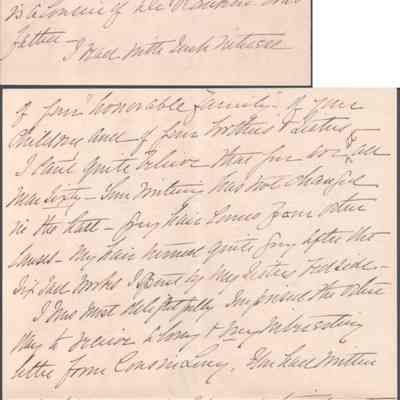 is a cousin of
father - I read with much interest
of your "honorable family" - of your
children and of your brothers & sisters -
I can't quite believe that you are all
near sixty - Your writing has not changed
in the least - Grey hair comes from other
causes - My hair turned quite grey after the
six sad weeks I spent by my sister's bedside -
I was most delightfully surprised the other
day to receive a long & very interesting
letter from Cousin Lucy. You had written